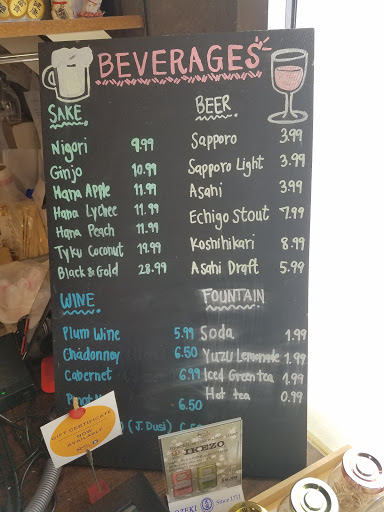 BEVERAGES
SAKE
Nigori 9.99
Ginjo 10.99
Hana Apple 11.99
Hana Lychee 11.99
Hana Peach 11.99
Tyku Coconut 19.99
Black & Gold 28.99
BEER
Sapporo 3.99
Sapporo Light 3.99
Asahi 3.99
Echigo Stout 7.99
Koshihikari 8.99
Asahi Draft 5.99
WINE
Plum Wine 5.99
Chadonnay 6.50
Cabernet 6.99
6.50
(J. Dusi)
FOUNTAIN
Soda 1.99
Yuzu Lemonade 1.99
Iced Green tea 1.99
Hot tea 0.99
GIFT CERTIFICATE
NOW
AVAILABLE
IKEZO
OZEKI Since 1711